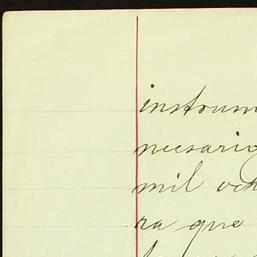 instrum
necsario
mil och
ra que